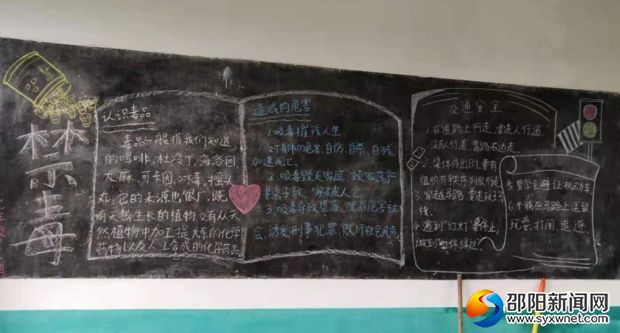 禁毒
认识毒品
毒品一般指我们知道
的吗啡、杜冷丁、海洛因
大麻、可卡因、冰毒、摇头
丸,它的来源也很广,既
有天然生长的植物,又有从天
然植物中加工提炼的化学
药物以及人工合成的化学药品
造成的危害
1.吸毒摧残人生
对身体的危害、自伤、自杀、自残
加速死亡。
2.吸毒毁灭家庭
家破人亡
3.吸毒导致堕落、犯罪危害社
会,诱发刑事犯罪、败坏社会风气
交通安全
1.在道路上行走,要走人行道
没有人行道,靠路右边走
2.集体外出时,要有
组织有秩序列队行走
3.穿越马路,要走斑马
线
4.遇到"红灯"要停止,
做到"
5.要学会避让机动车
6.不能在马路上逗留
玩耍、打闹、追逐
邵阳新闻网
www.syxwnet.com